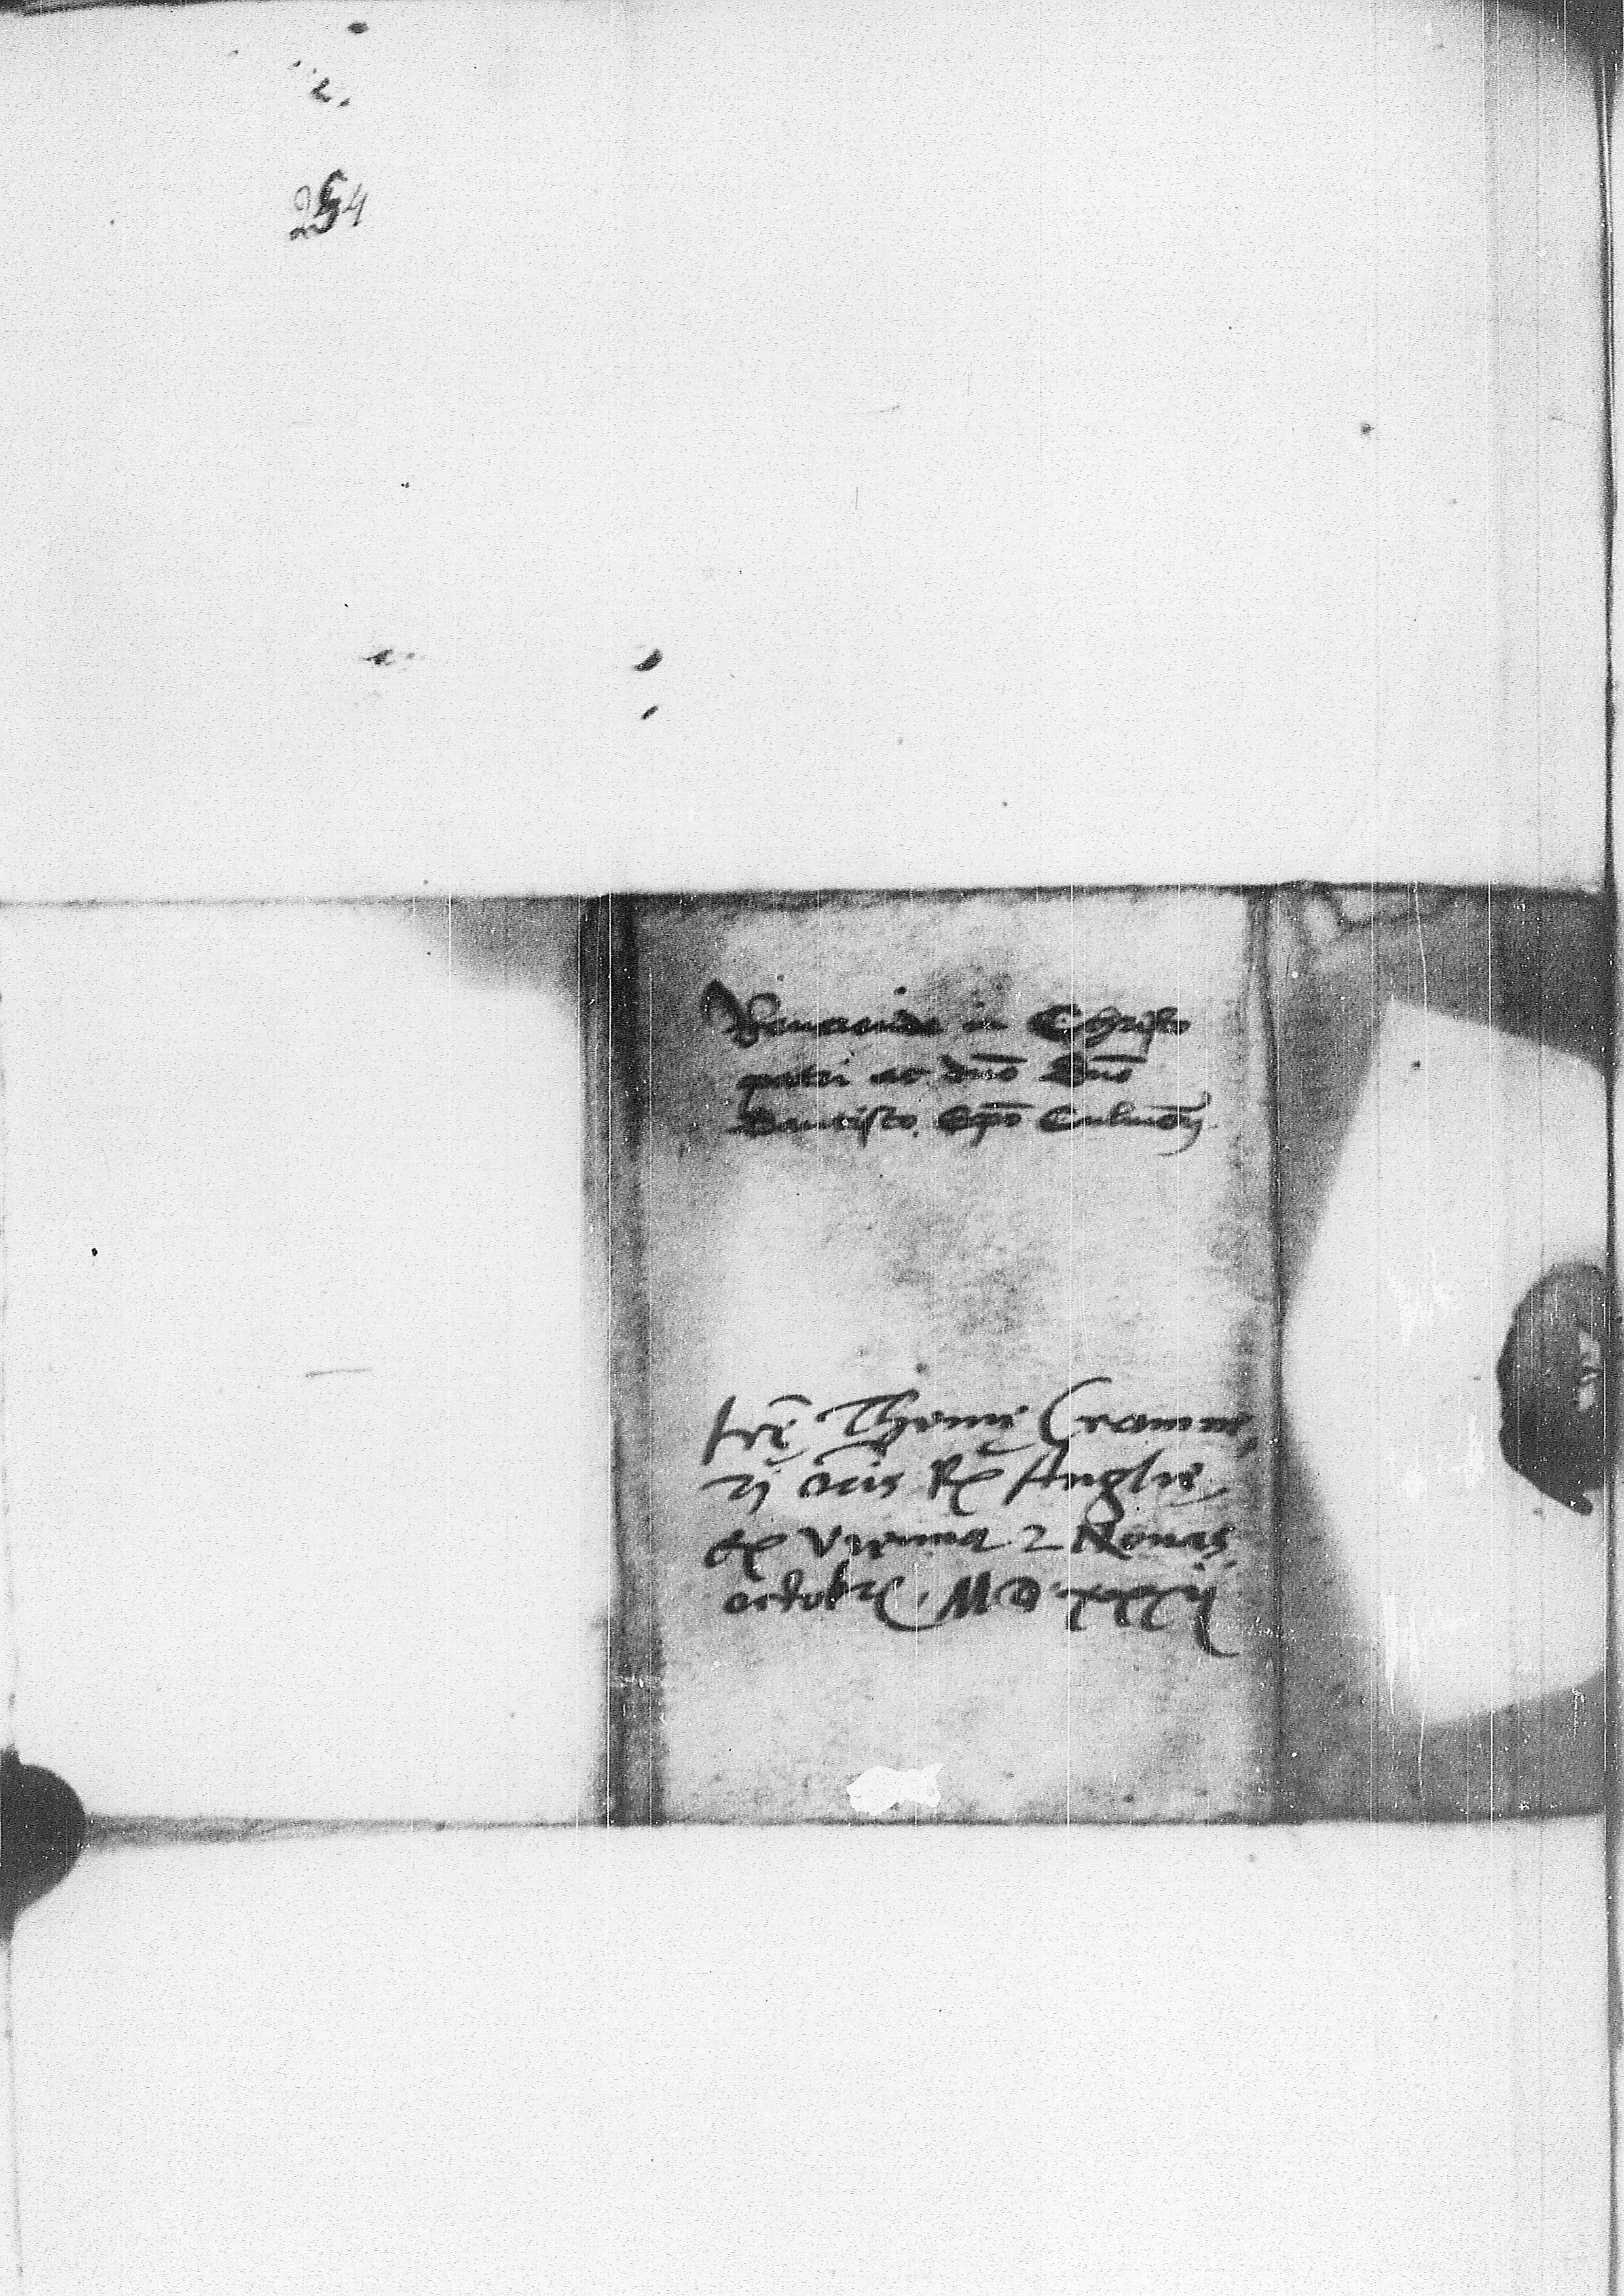 254
Reuerendo in Christo
patri ac dno Dno
Dantisco. Epo Culmeñ
Lrẽ Thome Cranme,
rj oris R Anglie
ex Vienna 2 Nonas
octobr. MD.xxxij